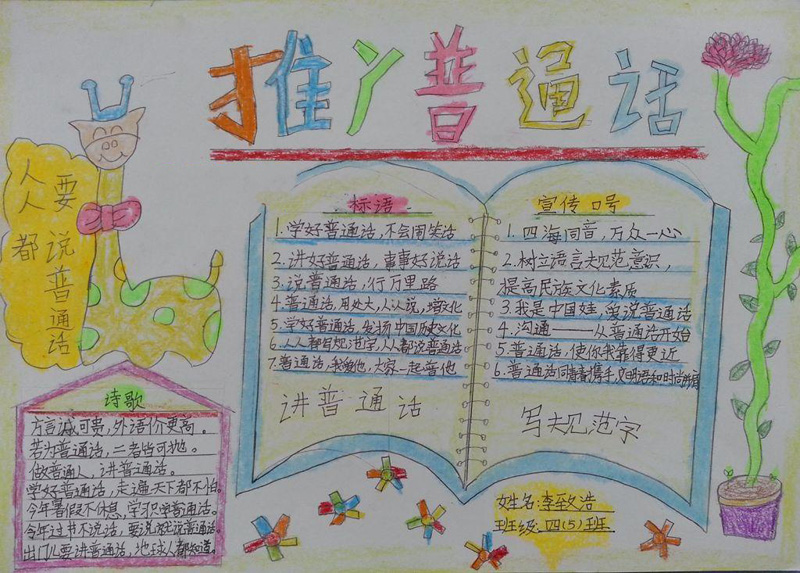 推丫普通话
人人要
都说普通话
标语
1.学好普通话,不会闹笑话
2.讲好普通话,事事好说话
3.说普通话,行万里路
4.普通话,用处大,人人说,增文化
5.学好普通话,发扬中国历史文化
6.人人都写规范字,人人都说普通话
7.普通话,我你他,大家一起普他
讲普通话
宣传口号
1.四海同音,万众一心
2.树立语言规范意识,
提高民族文化素质
3.我是中国娃,爱说普通话
4.沟通——从普通话开始
5.普通话,使你我靠得更近
6.普通话同青春携手,文明语和时尚
写规范字
诗歌
方言诚可贵,外语价更高。
若为普通话,二者皆可抛。
做普通人,讲普通话。
学好普通话,走遍天下都不怕。
今年暑假不休息,学习学普通话。
今年过节不说话,要说就说普通话
出门儿要讲普通话,地球人都知道。
姓名:李致浩
班级:四(5)班